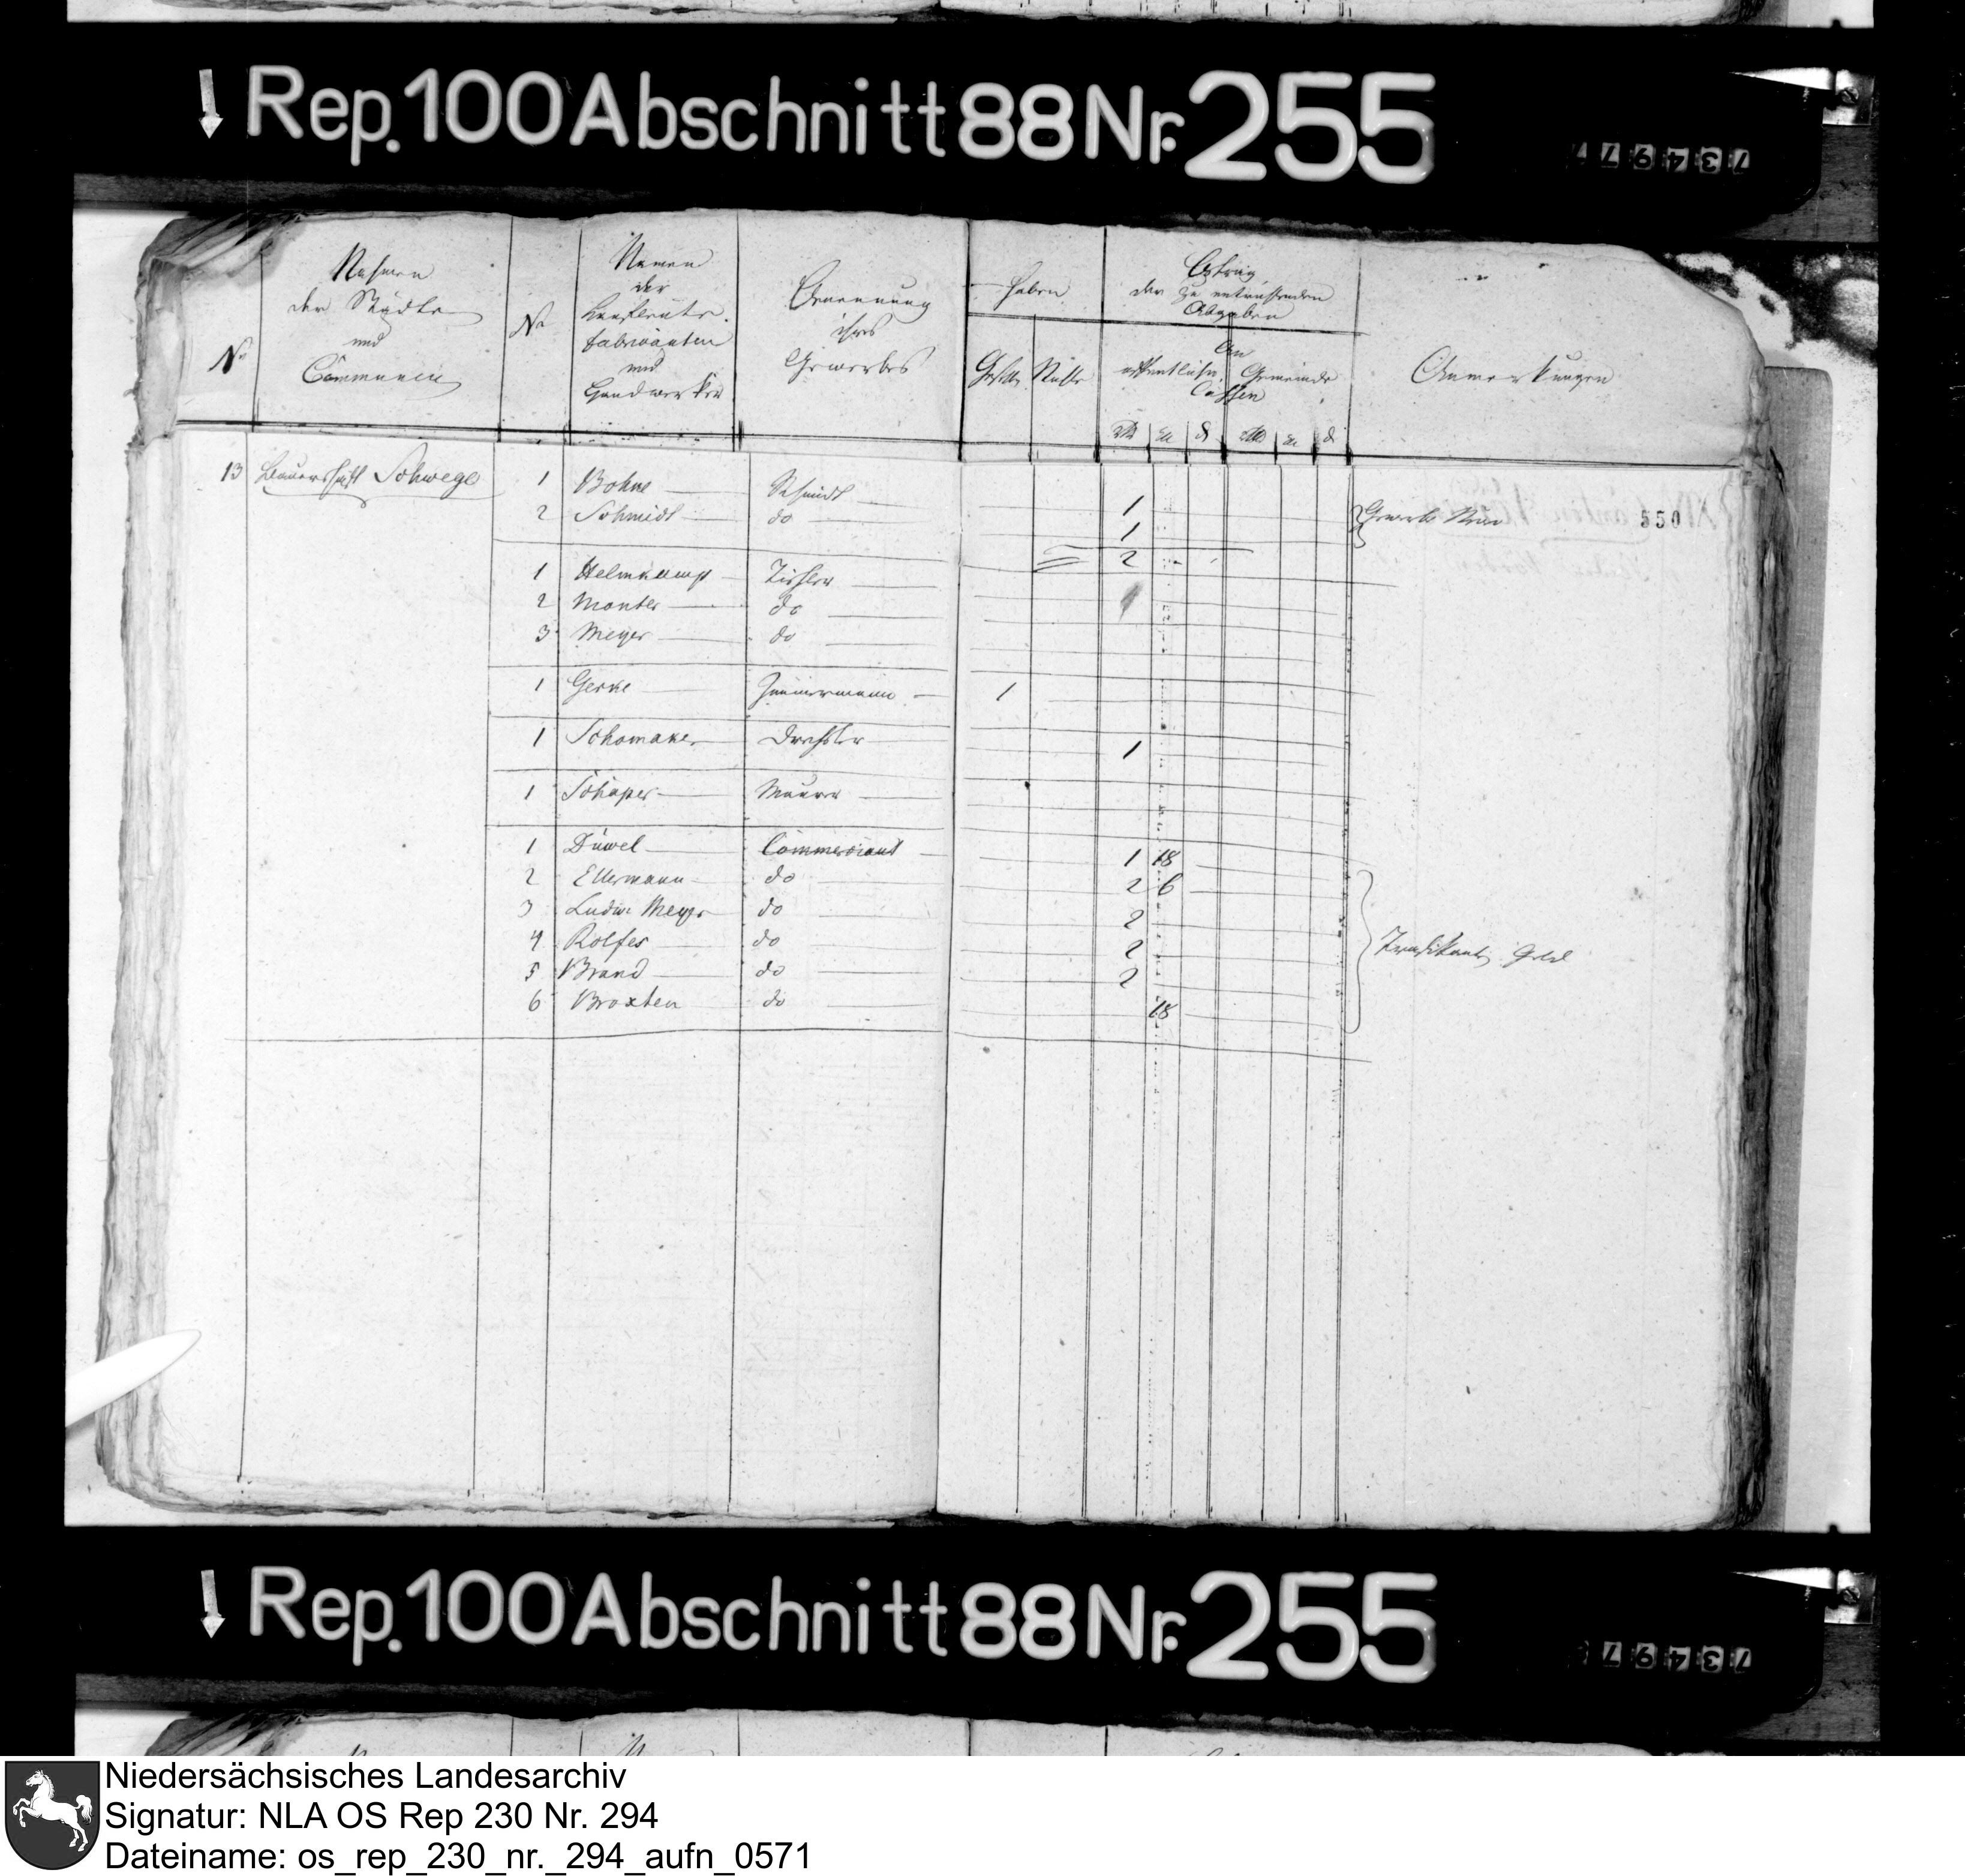 Rep. 100 Abschnitt 88 Nr. 255
73497
No
Nahmen
der Städte
und
Communen
No
Namen
der
Kaufleute
Fabricanten
und
Handwerker
Benennung
ihres
Gewerbes
Haben
Gesellen
Betrag
der zu entrichtenden
Abgaben
An
öffentliche Gemeinde
Cassen
Anmerkungen
13 Bauerschaft Schwege
1 Bohne Schmidt 1
2 Schmidt do 1
Gewerbe Steuer
550
2
1 Helmkamp Tischler
2 Monter do
3 Meyer do
1 Gerke Zimmermann 1
1 Schomaker Drechsler 1
1 Schaper Maurer
1 Düwel Commerciant 1 18
2 Ellermann do 2 6
3 Ludw. Meyer do 2
4 Rolfes do 2
5 Brand do 2
6 Broxten do 18
Geld
Rep. 100 Abschnitt 88 Nr. 255
73497
Niedersächsisches Landesarchiv
Signatur: NLA OS Rep 230 Nr. 294
Dateiname: os_rep_230_nr._294_aufn_0571